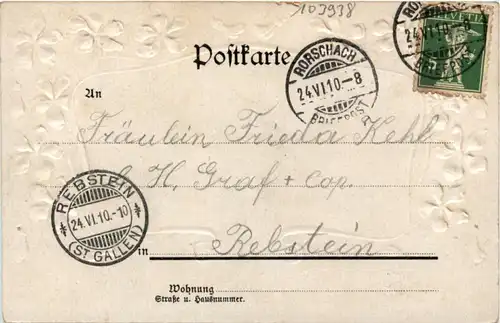 103938
Postkarte
RORSCHACH
24.VI.10.-8
BRIEFPOST
HELVETIA
24.VI.10.-8
BRIEFPOST
An
Fräulein Frieda Kehl
H. Graf + Cop.
REBSTEIN
24.VI.10.-10
(ST GALLEN)
in Rebstein
Wohnung
Straße u. Hausnummer.